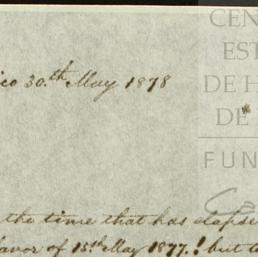 CEN
EST
DE H
DE
FUN
ico 30.th May 1878
the time that has elapse
favor of 15th May 1877.! but t